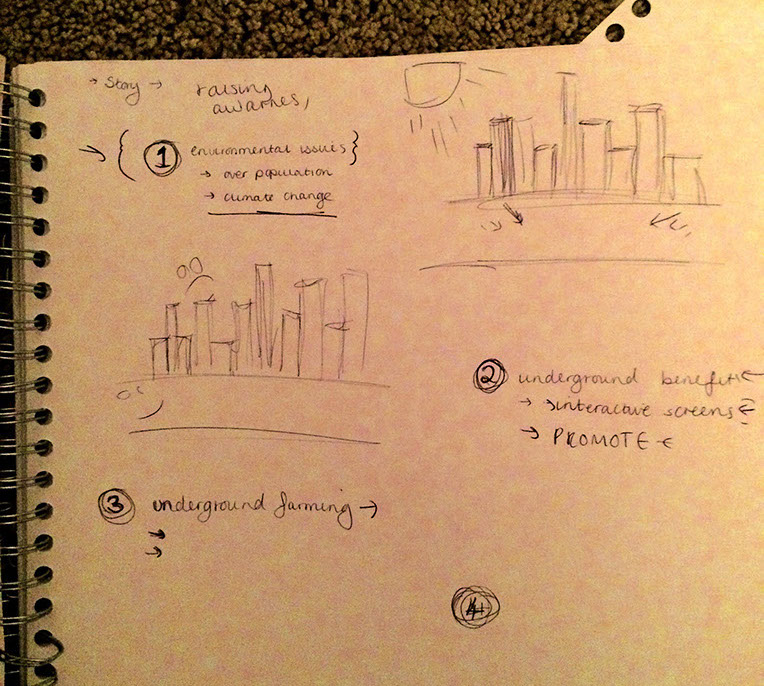 → Story → raising
awarnes,
→ { 1 environmental issues }
→ over population
→ climate change
2 underground benefits ←
→ → interactive screens ←
→ PROMOTE ←
3 underground farming →
→
→
4